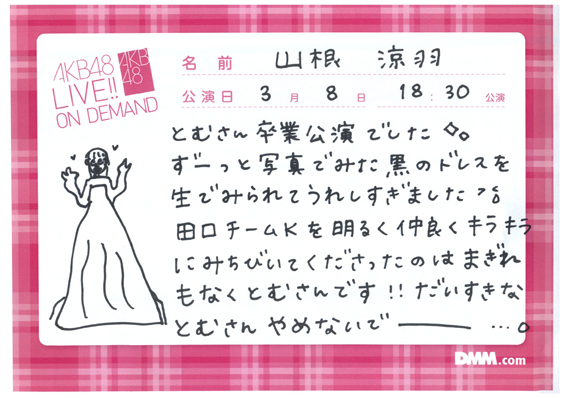 AKB48
LIVE!!
ON DEMAND
AKB
48
名前 山根 涼羽
公演日 3月 8日 18:30 公演
とむさん卒業公演でした
ずーっと写真でみた黒のドレスを
生でみられてうれしすぎました
田口チームKを明るく仲良くキラキラ
にみちびいてくださったのはまぎれ
もなくとむさんです!!だいすきな
とむさんやめないで――…。
DMM.com